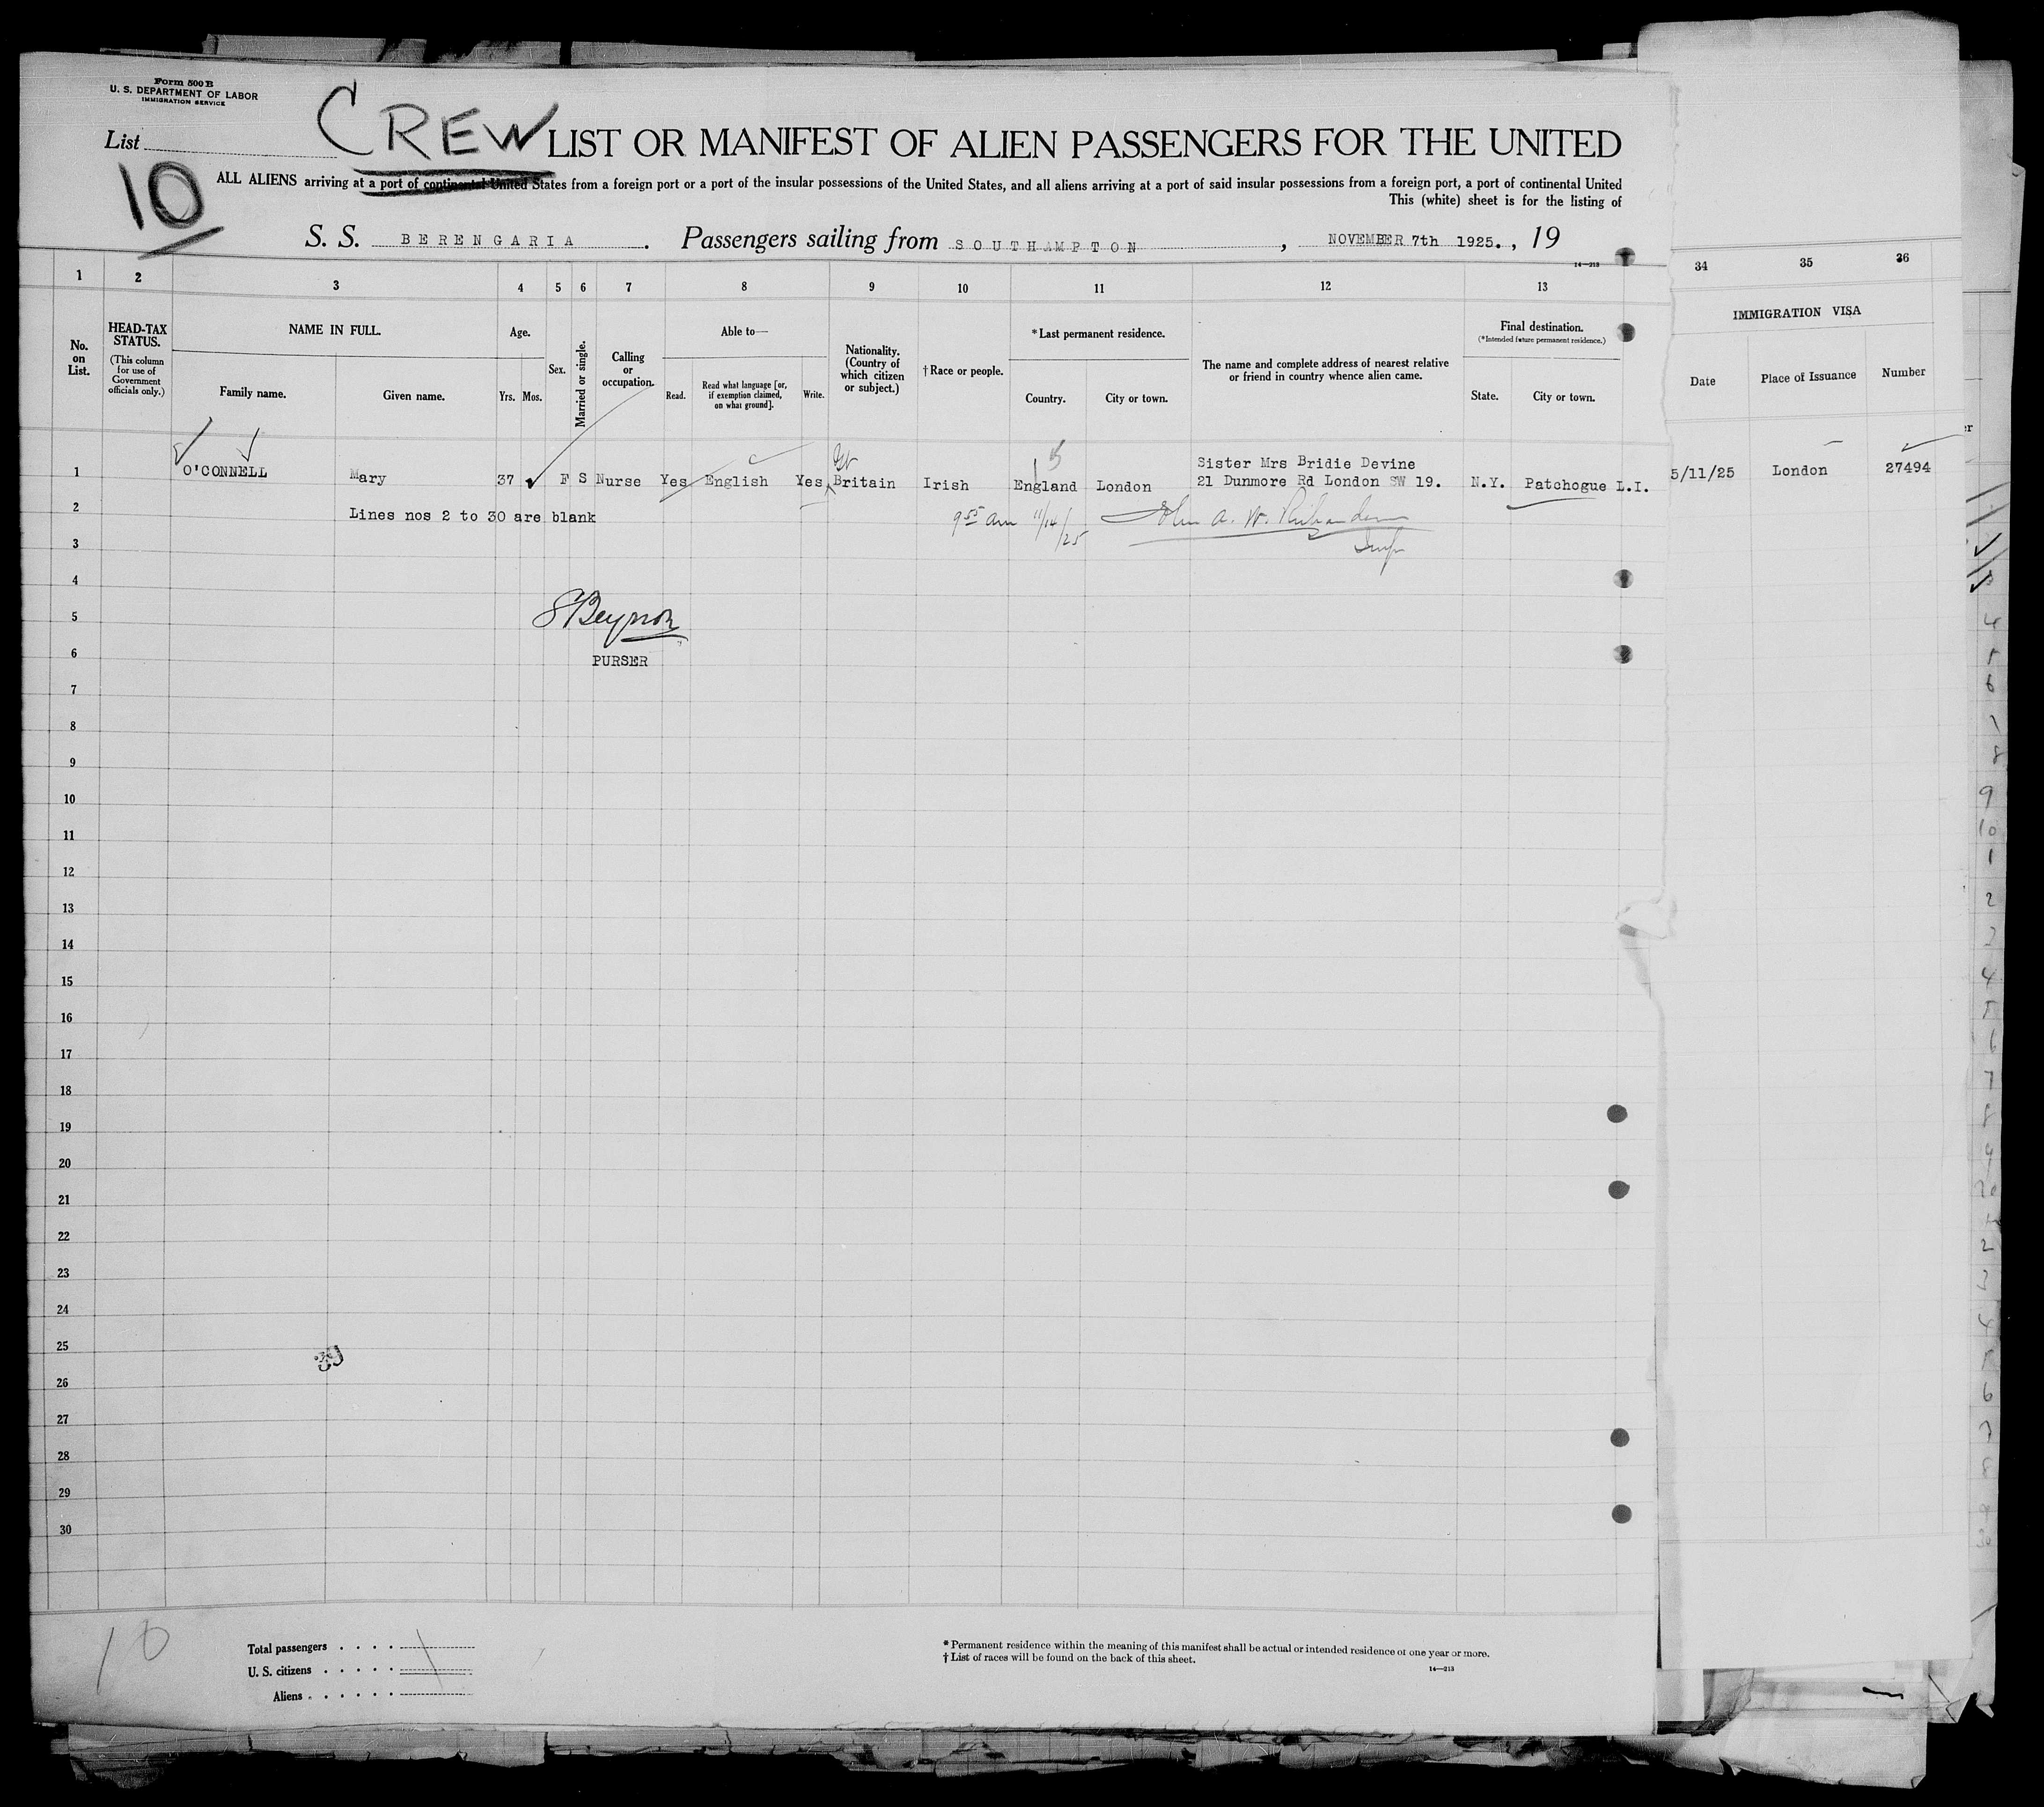 Form 500 B
U. S. DEPARTMENT OF LABOR
IMMIGRATION SERVICE
List
CREW
10
LIST OR MANIFEST OF ALIEN PASSENGERS FOR THE UNITED
ALL ALIENS arriving at a port of continental United States from a foreign port or a port of the insular possessions of the United States, and all aliens arriving at a port of said insular possessions from a foreign port, a port of continental United
This (white) sheet is for the listing of
S. S. BERENGARIA. Passengers sailing from SOUTHAMPTON, NOVEMBER 7th 1925., 19
14—213
1 2 3 4 5 6 7 8 9 10 11 12 13 34 35 36
No. on List.
HEAD-TAX STATUS.
(This column for use of Government officials only.)
NAME IN FULL.
Family name.
Given name.
Age.
Yrs. Mos.
Sex.
Married or single.
Calling or occupation.
Able to—
Read.
Read what language [or, if exemption claimed, on what ground].
Write.
Nationality. (Country of which citizen or subject.)
†Race or people.
*Last permanent residence.
Country.
City or town.
The name and complete address of nearest relative or friend in country whence alien came.
Final destination.
(*Intended future permanent residence.)
State.
City or town.
IMMIGRATION VISA
Date
Place of Issuance
Number
1 O'CONNELL Mary 37 F S Nurse Yes English Yes Gt Britain Irish England London Sister Mrs Bridie Devine 21 Dunmore Rd London SW 19. N.Y. Patchogue L.I. 5/11/25 London 27494
2 Lines nos 2 to 30 are blank 9 55 am 11/14/25 John A. W. Richardson
3 Insp
4
5 Beynon
6 PURSER
7
8
9
10
11
12
13
14
15
16
17
18
19
20
21
22
23
24
25
39
26
27
28
29
30
10
Total passengers
U. S. citizens
Aliens
* Permanent residence within the meaning of this manifest shall be actual or intended residence of one year or more.
† List of races will be found on the back of this sheet.
14—213